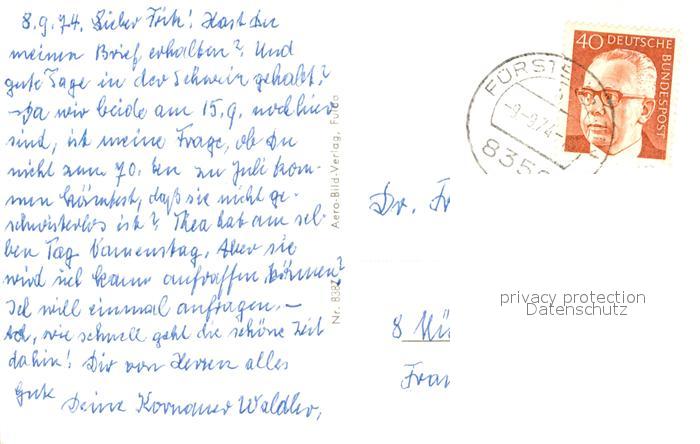 8.9.74. Lieber Fritz! Hast Du
meinen Brief erhalten? Und
gute Tage in der Schweiz gehabt?
– Da wir beide am 15.9. noch hier
sind, ist meine Frage, ob Du
nicht zum 70. bei zu Juli kom-
men könntest, daß sie nicht ge-
schwisterlos ist? Thea hat am sel-
ben Tag Namenstag. Aber sie
wird sich kaum aufraffen können?
Ich will einmal anfragen. –
Ach, wie schnell geht die schöne Zeit
dahin! Dir von Herzen alles
Gute Deine Waldler,
Nr. Aero-Bild-Verlag, Fulda
40 DEUTSCHE
BUNDESPOST
FÜRSTE
-9.-9.74-
835
Dr. Fr
8 Mü
Fran
privacy protection
Datenschutz